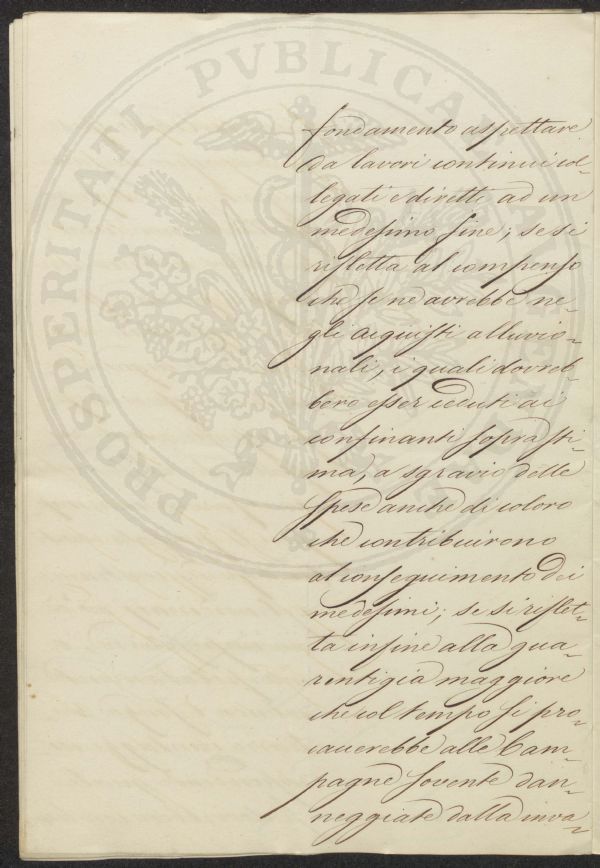 PROSPERITATI PVBLICAE AVGENDAE
fondamento aspettare
da lavori continui col-
legati e diretti ad un
medesimo fine; se si
rifletta al compenso
che se ne avrebbe ne-
gli acquisti alluvio-
nali, i quali dovreb-
bero esser ceduti ai
confinanti sopra sti-
ma, a sgravio delle
spese anche di coloro
che contribuirono
al conseguimento dei
medesimi; se si riflet-
ta infine alla gua-
rentigia maggiore
che col tempo si pro-
caccerebbe alle Cam-
pagne sovente dan-
neggiate dalla inva-